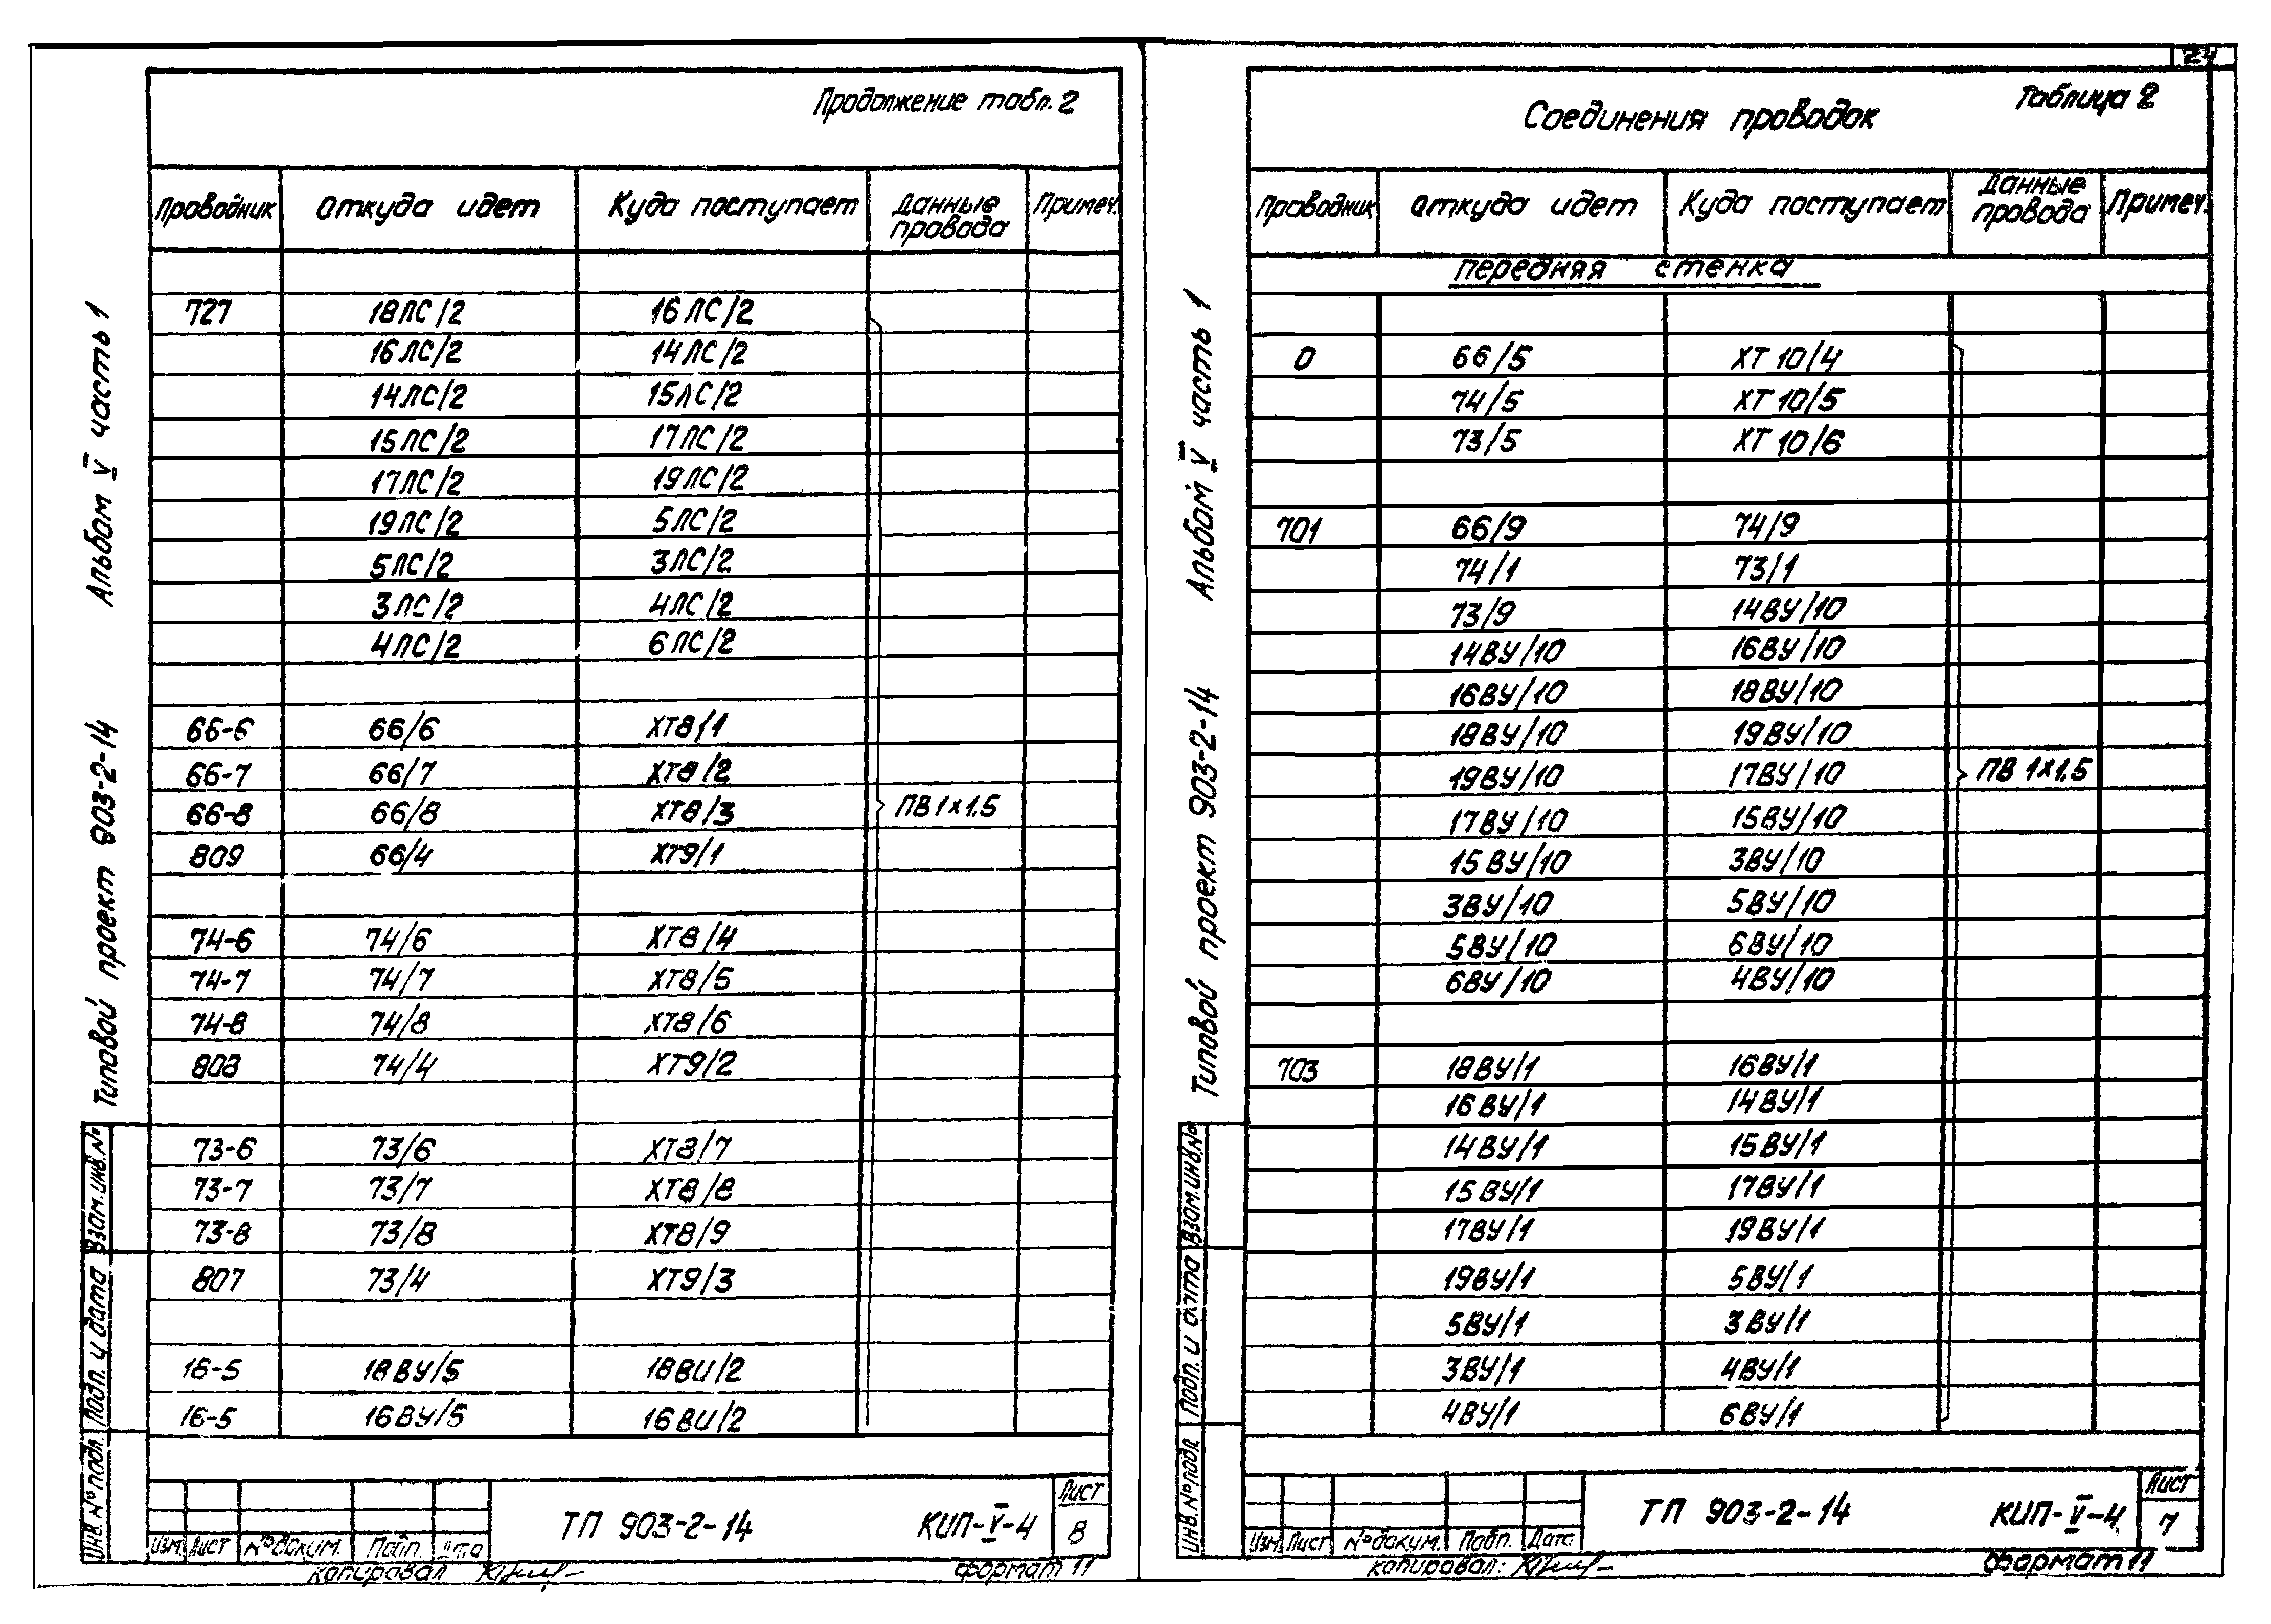 24
Продолжение табл. 2
Проводник Откуда идет Куда поступает Данные провода Примеч.
727 18ЛС/2 16ЛС/2
16ЛС/2 14ЛС/2
14ЛС/2 15ЛС/2
15ЛС/2 17ЛС/2
17ЛС/2 19ЛС/2
19ЛС/2 5ЛС/2
5ЛС/2 3ЛС/2
3ЛС/2 4ЛС/2
4ЛС/2 6ЛС/2
66-6 66/6 ХТ8/1
66-7 66/7 ХТ8/2
66-8 66/8 ХТ8/3 ПВ 1×1.5
809 66/4 ХТ9/1
74-6 74/6 ХТ8/4
74-7 74/7 ХТ8/5
74-8 74/8 ХТ8/6
808 74/4 ХТ9/2
73-6 73/6 ХТ8/7
73-7 73/7 ХТ8/8
73-8 73/8 ХТ8/9
807 73/4 ХТ9/3
18-5 18ВУ/5 18ВИ/2
16-5 16ВУ/5 16ВИ/2
Альбом V часть 1
Типовой проект 903-2-14
Взам.инв.№
Подп. и дата
Инв.№подл.
Изм. Лист №докум. Подп. Дата
ТП 903-2-14 КИП-V-4
Лист
8
копировал
формат 11
Таблица 2
Соединения проводок
Проводник Откуда идет Куда поступает Данные провода Примеч.
передняя стенка
0 66/5 ХТ 10/4
74/5 ХТ 10/5
73/5 ХТ 10/6
701 66/9 74/9
74/1 73/1
73/9 14ВУ/10
14ВУ/10 16ВУ/10
16ВУ/10 18ВУ/10
18ВУ/10 19ВУ/10
19ВУ/10 17ВУ/10 ПВ 1×1.5
17ВУ/10 15ВУ/10
15ВУ/10 3ВУ/10
3ВУ/10 5ВУ/10
5ВУ/10 6ВУ/10
6ВУ/10 4ВУ/10
703 18ВУ/1 16ВУ/1
16ВУ/1 14ВУ/1
14ВУ/1 15ВУ/1
15ВУ/1 17ВУ/1
17ВУ/1 19ВУ/1
19ВУ/1 5ВУ/1
5ВУ/1 3ВУ/1
3ВУ/1 4ВУ/1
4ВУ/1 6ВУ/1
Альбом V часть 1
Типовой проект 903-2-14
Взам.инв.№
Подп. и дата
Инв.№подл.
Изм. Лист №докум. Подп. Дата
ТП 903-2-14 КИП-V-4
Лист
7
копировал:
формат 11